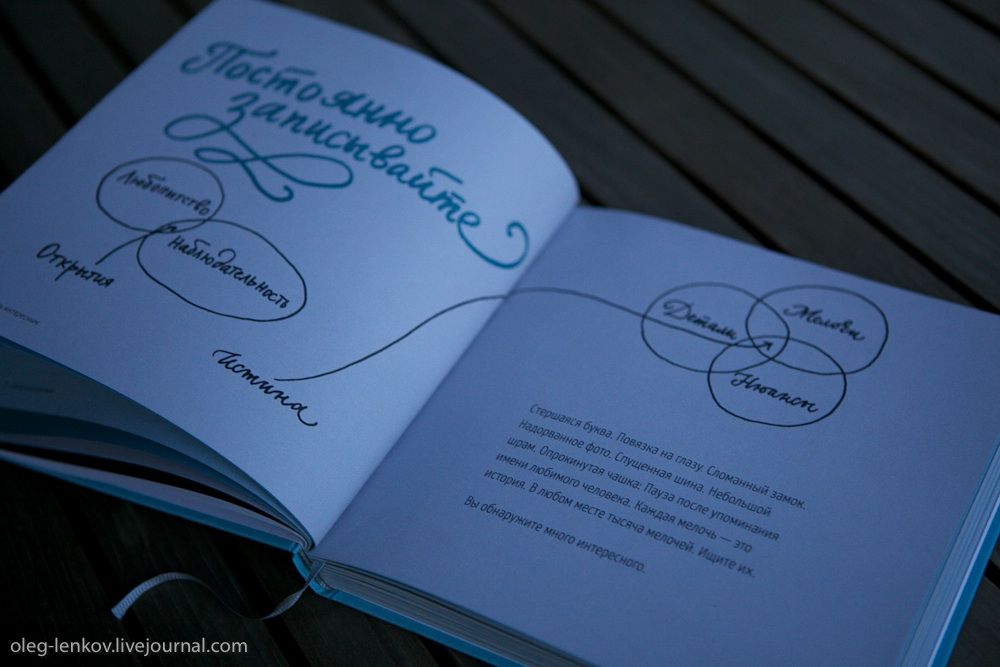 Постоянно
записывайте
Любопытство
Наблюдательность
Открытия
Истина
Детали
Мелочи
Нюансы
Стершаяся буква. Повязка на глазу. Сломанный замок.
Надорванное фото. Спущенная шина. Небольшой
шрам. Опрокинутая чашка. Пауза после упоминания
имени любимого человека. Каждая мелочь — это
история. В любом месте тысяча мелочей. Ищите их.
Вы обнаружите много интересного.
oleg-lenkov.livejournal.com